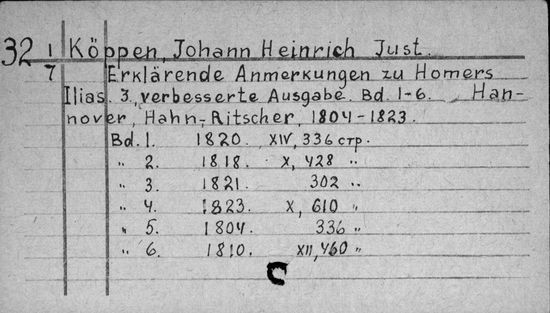 32 1/7 Köppen, Johann Heinrich Just.
Erklärende Anmerkungen zu Homers
Ilias. 3., verbesserte Ausgabe. Bd. 1-6. Han-
nover, Hahn-Ritscher, 1804-1823.
Bd. 1. 1820. XIV, 336 стр.
" 2. 1818. X, 428 "
" 3. 1821. 302 "
" 4. 1823. X, 610 "
" 5. 1804. 336 "
" 6. 1810. XII, 460 "
C